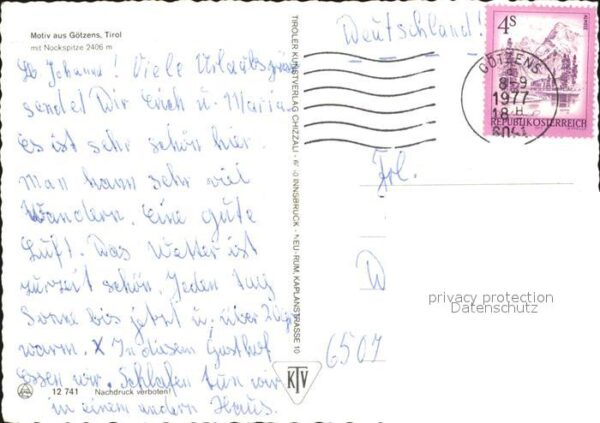 Motiv aus Götzens, Tirol
mit Nockspitze 2406 m
Lb. Johanna! Viele Urlaubsgrüsse
sendet Dir Erich u. Maria.
Es ist sehr schön hier.
Man kann sehr viel
Wandern. Eine gute
Luft! Das Wetter ist
zurzeit schön. Jeden Tag
Sonne bis jetzt u. über
warm. X In diesem Gasthof
Essen wir. Schlafen tun wir
in einem andern Haus.
12 741 Nachdruck verboten!
TIROLER KUNSTVERLAG CHIZZALI · INNSBRUCK · NEU-RUM, KAPLANSTRASSE 10
KTV
Deutschland!
4S
REPUBLIK ÖSTERREICH
GÖTZENS
1977
18
6091
Frl.
W
6507
privacy protection
Datenschutz